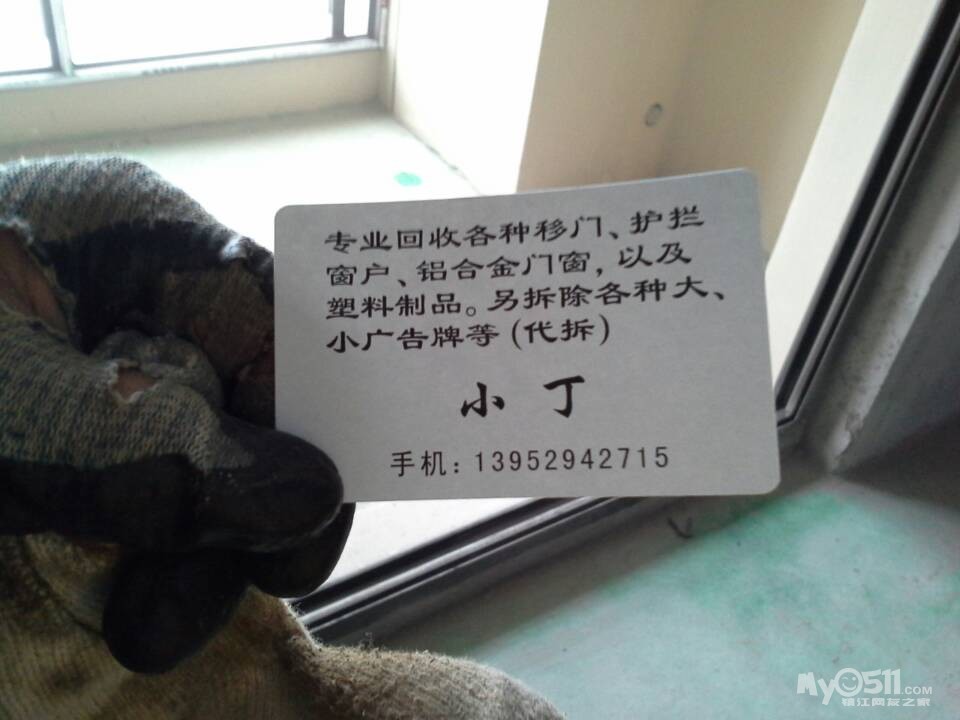 专业回收各种移门、护拦
窗户、铝合金门窗，以及
塑料制品。另拆除各种大、
小广告牌等（代拆）
小丁
手机：13952942715
My0511.COM
镇江网友之家